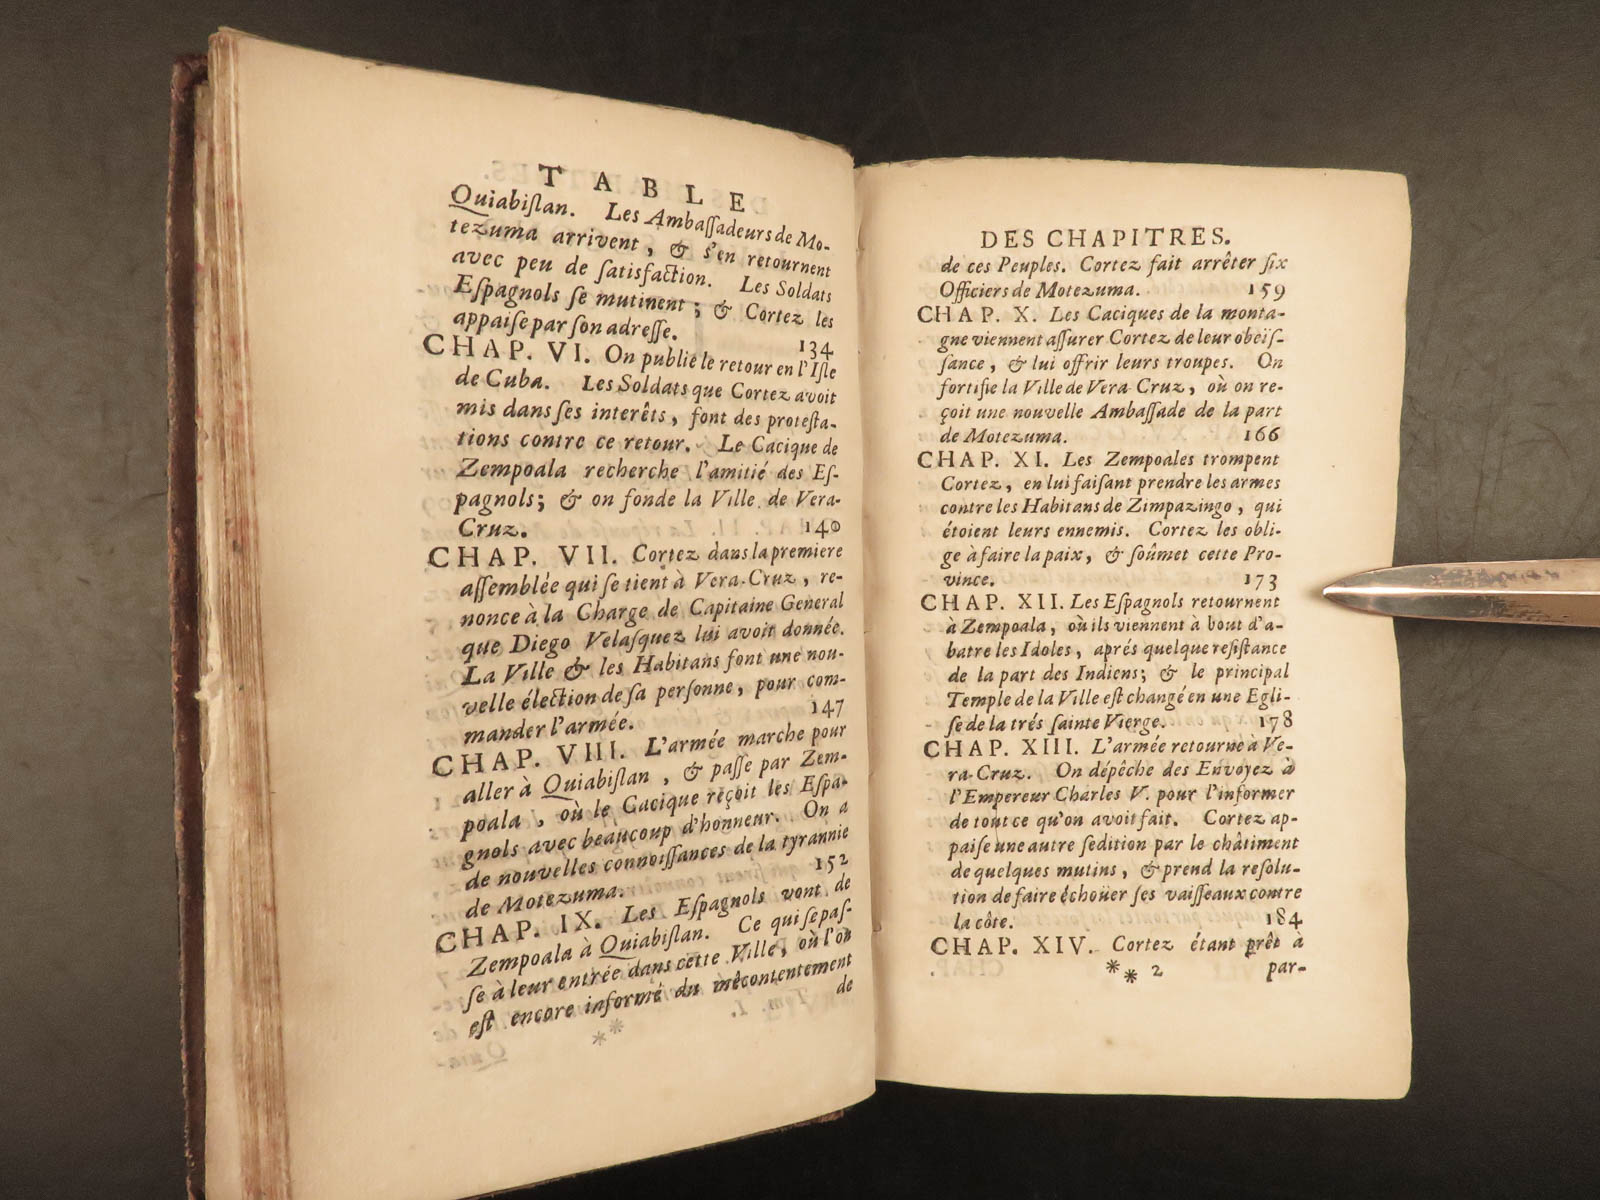 TABLE
Quiabiſlan. Les Ambaſſadeurs de Mo-
tezuma arrivent, & s'en retournent
avec peu de ſatisfaction. Les Soldats
Eſpagnols ſe mutinent; & Cortez les
appaiſe par ſon adreſſe. 134
CHAP. VI. On publie le retour en l'Iſle
de Cuba. Les Soldats que Cortez avoit
mis dans ſes interêts, font des proteſta-
tions contre ce retour. Le Cacique de
Zempoala recherche l'amitié des Eſ-
pagnols; & on fonde la Ville de Vera-
Cruz. 140
CHAP. VII. Cortez dans la premiere
aſſemblée qui ſe tient à Vera-Cruz, re-
nonce à la Charge de Capitaine General
que Diego Velaſquez lui avoit donnée.
La Ville & les Habitans font une nou-
velle élection de ſa perſonne, pour com-
mander l'armée. 147
CHAP. VIII. L'armée marche pour
aller à Quiabiſlan, & paſſe par Zem-
poala, où le Cacique reçoit les Eſpa-
gnols avec beaucoup d'honneur. On a
de nouvelles connoiſſances de la tyrannie
de Motezuma. 152
CHAP. IX. Les Eſpagnols vont de
Zempoala à Quiabiſlan. Ce qui ſe paſ-
ſe à leur entrée dans cette Ville, où l'on
eſt encore informé du mécontentement
de
DES CHAPITRES.
de ces Peuples. Cortez fait arrêter ſix
Officiers de Motezuma. 159
CHAP. X. Les Caciques de la monta-
gne viennent aſſurer Cortez de leur obeïſ-
ſance, & lui offrir leurs troupes. On
fortifie la Ville de Vera-Cruz, où on re-
çoit une nouvelle Ambaſſade de la part
de Motezuma. 166
CHAP. XI. Les Zempoales trompent
Cortez, en lui faiſant prendre les armes
contre les Habitans de Zimpazingo, qui
étoient leurs ennemis. Cortez les obli-
ge à faire la paix, & ſoûmet cette Pro-
vince. 173
CHAP. XII. Les Eſpagnols retournent
à Zempoala, où ils viennent à bout d'a-
batre les Idoles, aprés quelque reſiſtance
de la part des Indiens; & le principal
Temple de la Ville eſt changé en une Egli-
ſe de la trés ſainte Vierge. 178
CHAP. XIII. L'armée retourne à Ve-
ra-Cruz. On dépêche des Envoyez à
l'Empereur Charles V. pour l'informer
de tout ce qu'on avoit fait. Cortez ap-
paiſe une autre ſedition par le châtiment
de quelques mutins, & prend la reſolu-
tion de faire échoüer ſes vaiſſeaux contre
la côte. 184
CHAP. XIV. Cortez étant prêt à
** 2 par-